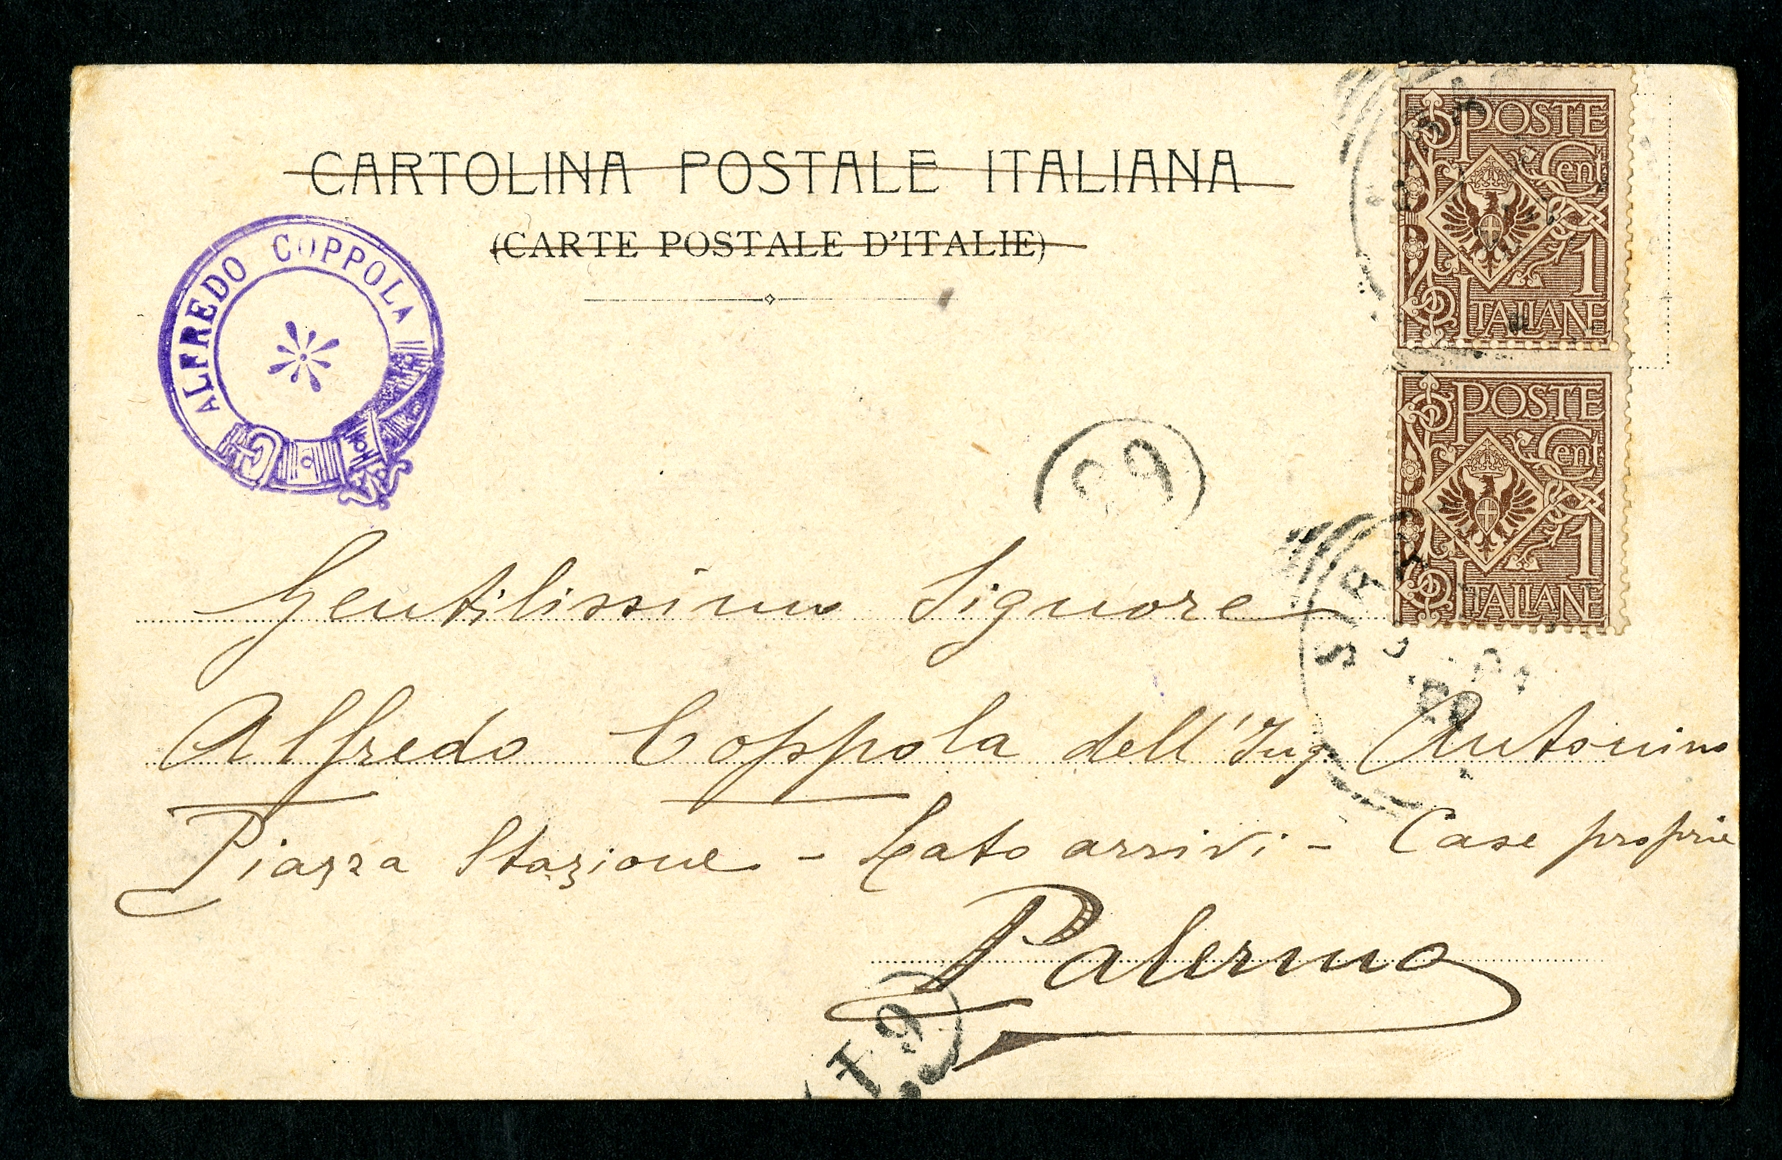 CARTOLINA POSTALE ITALIANA
(CARTE POSTALE D'ITALIE)
ALFREDO COPPOLA
POSTE
Cent
1
ITALIANE
POSTE
Cent
1
ITALIANE
Gentilissimo Signore
Alfredo Coppola dell'Ing. Antonino
Piazza Stazione - Lato arrivi - Case proprie
Palermo